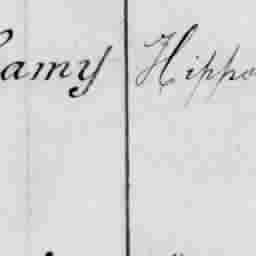 amy Hippo